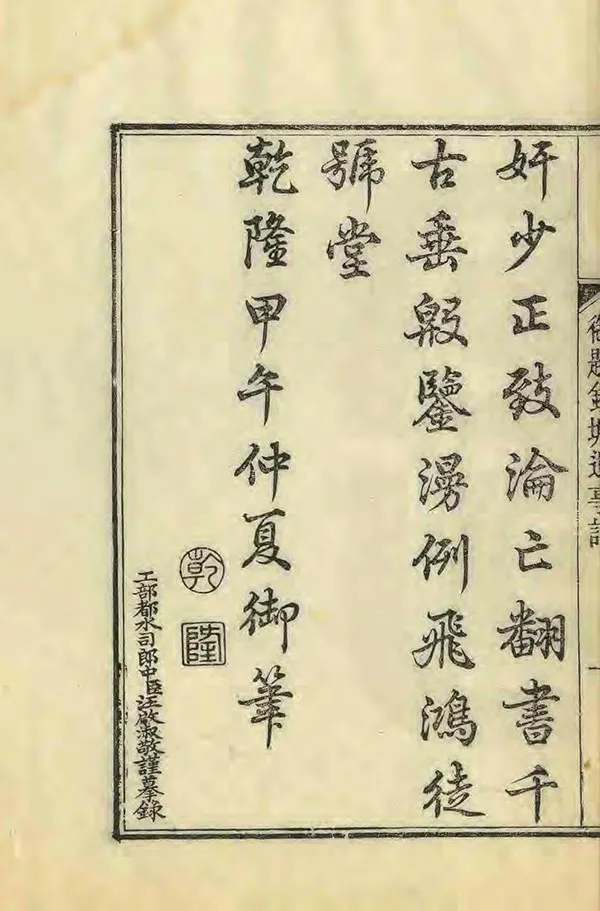 奸少正致淪亡翻書千
古垂殷鑒漫例飛鴻徒
號堂
乾隆甲午仲夏御筆
乾
隆
工部都水司郎中臣汪啟淑敬謹摹錄